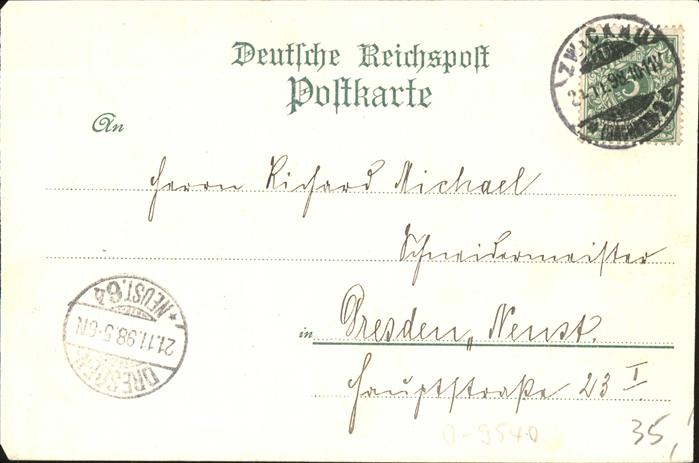 Deutsche Reichspost
Postkarte
ZWICKAU
An
Herrn Richard Michael
Schneidermeister
in Dresden, Neust.
Hauptstraße 23 I
DRESDEN
21.11.98.5-6N
*NEUST.6*
0-9540
35,